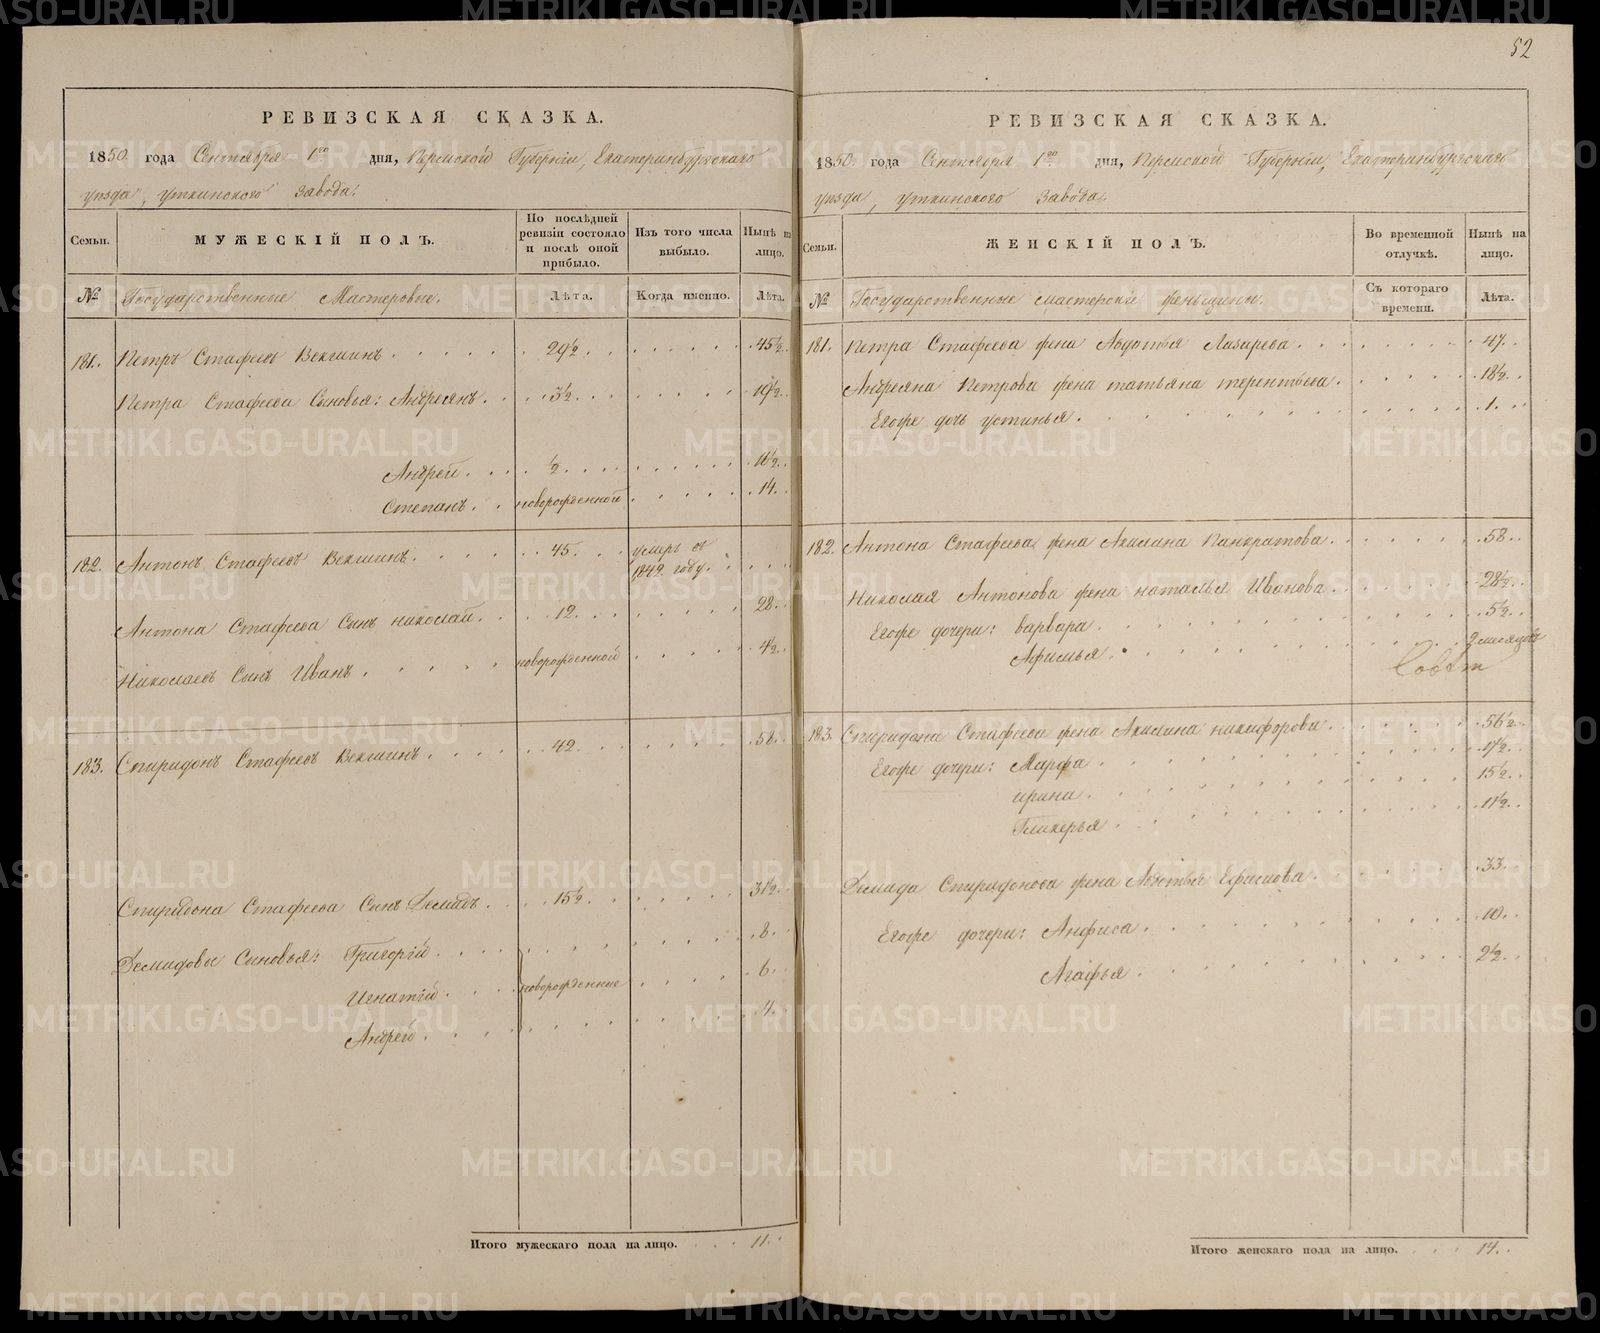 52
РЕВИЗСКАЯ СКАЗКА.
1850 года Сентября 1го дня, Пермской Губерніи, Екатеринбургскаго
уезда, Уткинского Завода.
Семьи.
МУЖЕСКІЙ ПОЛЪ.
По послѣдней ревизіи состояло и послѣ оной прибыло.
Изъ того числа выбыло.
Нынѣ на лицо.
№
Государственные Мастеровые.
Лѣта.
Когда именно.
Лѣта.
181. Петръ Стафеевъ Векшинъ 29½ 45½
Петра Стафеева Сыновья: Андреянъ 3½ 19½
Андрей ½ 16½
Степанъ новорожденной 14
182. Антонъ Стафеевъ Векшинъ 45 умеръ въ 1849 году
Антона Стафеева Сынъ николай 12 28
Николаевъ Сынъ Иванъ новорожденной 4½
183. Спиридонъ Стафеевъ Векшинъ 42 58
Спиридона Стафеева Сынъ Демидъ 15½ 31½
Демидовы Сыновья: Григорій 8
Игнатій новорожденные 6
Андрей 4
Итого мужескаго пола на лицо. 11
РЕВИЗСКАЯ СКАЗКА.
1850 года Сентября 1го дня, Пермской Губерніи, Екатеринбургскаго
уезда, Уткинского Завода.
Семьи.
ЖЕНСКІЙ ПОЛЪ.
Во временной отлучкѣ.
Нынѣ на лицо.
№
Государственные мастерскія женщины.
Съ котораго времени.
Лѣта.
181. Петра Стафеева жена Авдотья Лазарева 47
Андреяна Петрова жена татьяна терентьева 18½
Егоже дочь устинья 1
182. Антона Стафеева жена Акилина Панкратова 58
Николая Антонова жена наталья Иванова 28½
Егоже дочери: варвара 5½
Афимья 9 месяцовъ
183. Спиридона Стафеева жена Акилина никифорова 56½
Егоже дочери: Марфа 17½
ирина 15½
Гликерья 11½
Демида Спиридонова жена Авдотья Ефимова 33
Егоже дочери: Анфиса 10
Агафья 2½
Итого женскаго пола на лицо. 14
METRIKI.GASO-URAL.RU